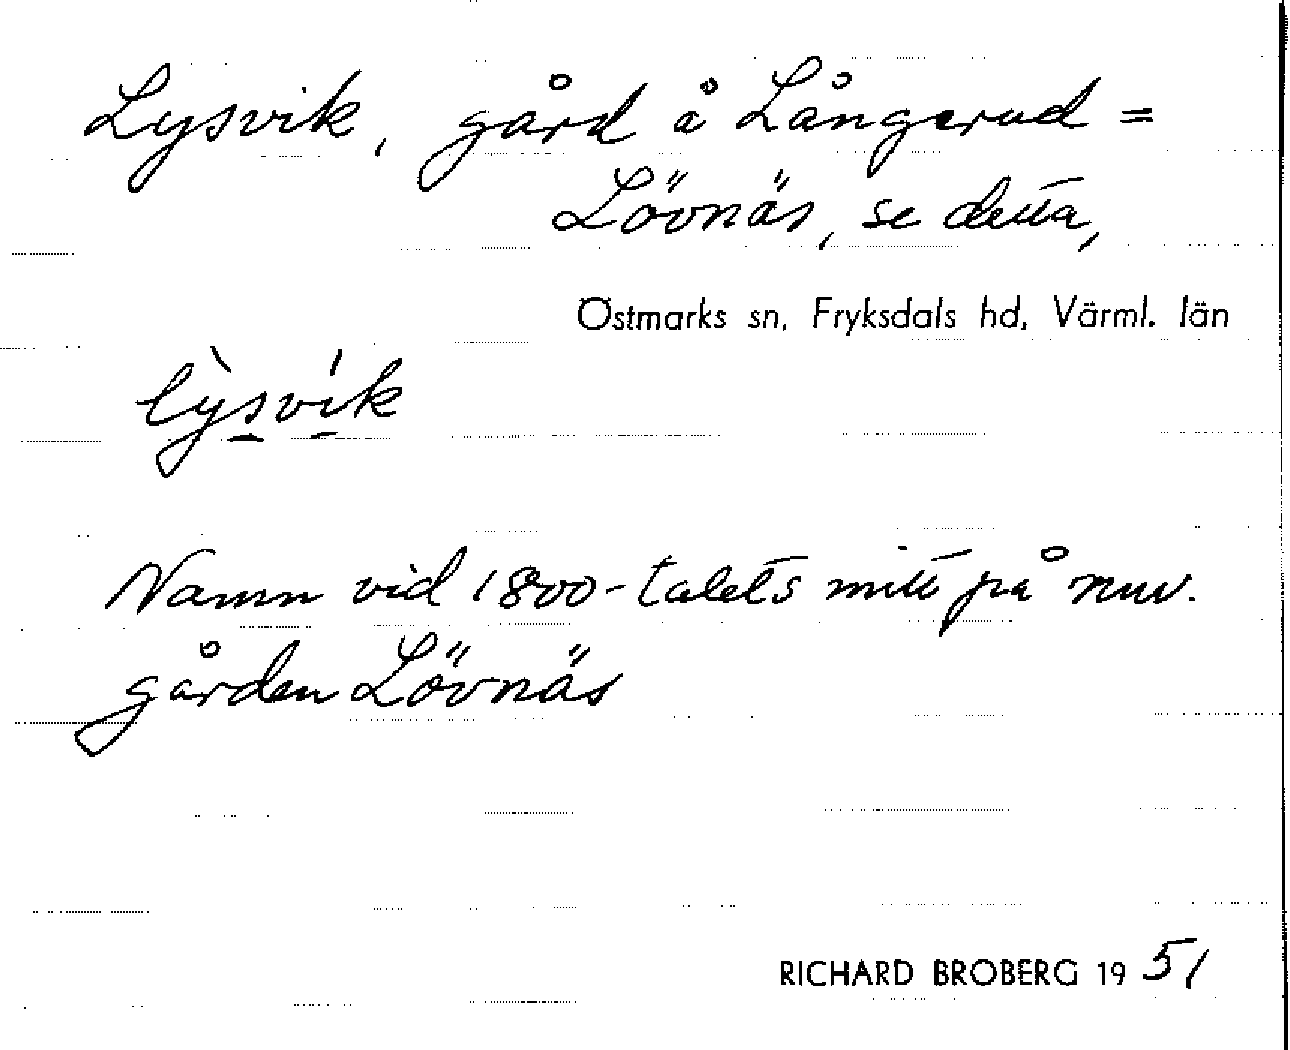 Lysvik, gård å Långerud =
Lövnäs, se detta,
Östmarks sn, Fryksdals hd, Värml. län
lỳsvík
Namn vid 1800-talets mitt på nuv.
gården Lövnäs
RICHARD BROBERG 1951